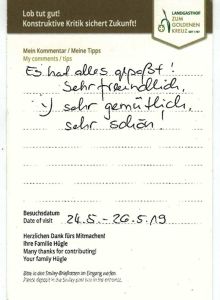 Lob tut gut!
Konstruktive Kritik sichert Zukunft!
LANDGASTHOF
ZUM
GOLDENEN
KREUZ
Mein Kommentar / Meine Tipps
My comments / tips
Es hat alles gepaßt!
Sehr freundlich,
:) sehr gemütlich,
sehr schön!
Besuchsdatum
Date of visit
24.5. - 26.5.19
Herzlichen Dank fürs Mitmachen!
Ihre Familie Hügle
Many thanks for contributing!
Your family Hügle
Bitte in den Smiley-Briefkasten im Eingang werfen.
Please deposit in the smiley post box in the entrance.